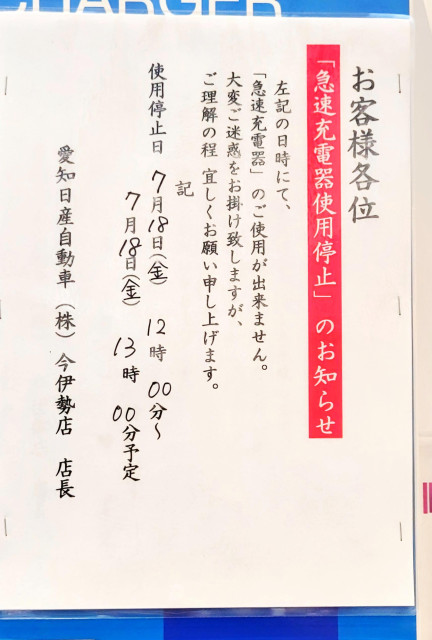 CHARGER
お客様各位
「急速充電器使用停止」のお知らせ
左記の日時にて、
「急速充電器」のご使用が出来ません。
大変ご迷惑をお掛け致しますが、
ご理解の程 宜しくお願い申し上げます。
記
使用停止日 7月18日(金) 12時 00分～
7月18日(金) 13時 00分予定
愛知日産自動車（株）今伊勢店 店長